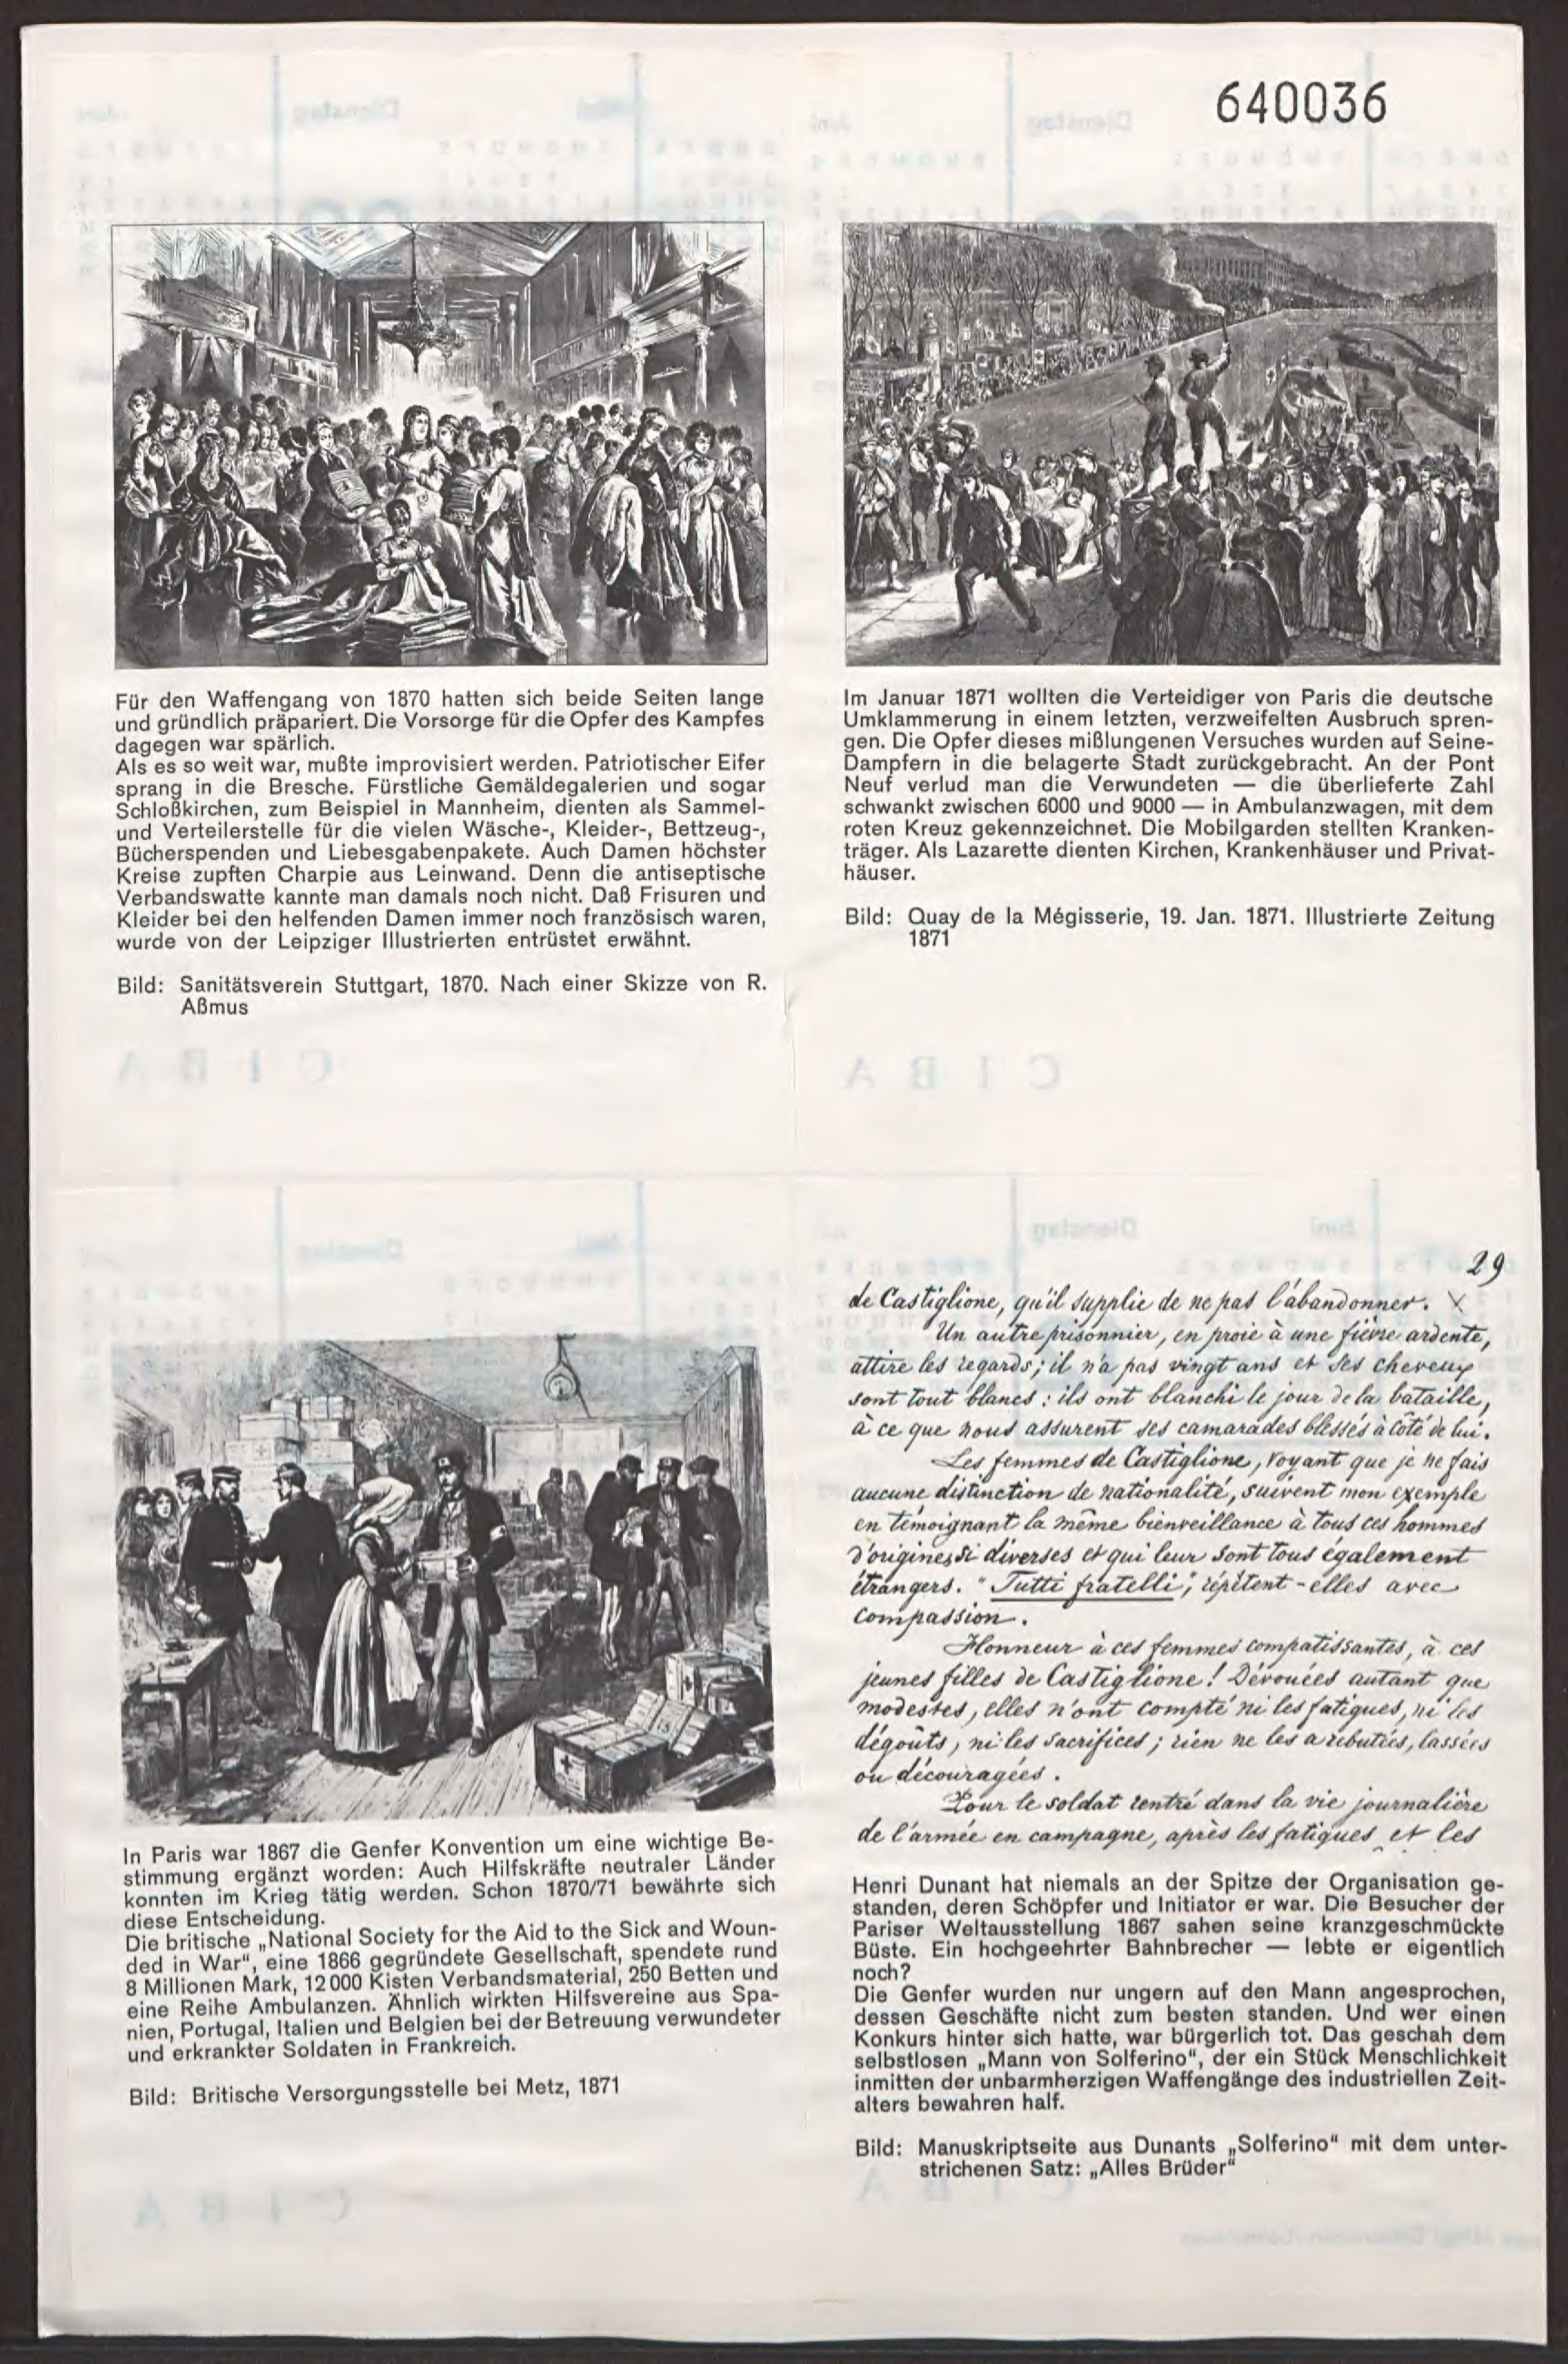 640036
Für den Waffengang von 1870 hatten sich beide Seiten lange
und gründlich präpariert. Die Vorsorge für die Opfer des Kampfes
dagegen war spärlich.
Als es so weit war, mußte improvisiert werden. Patriotischer Eifer
sprang in die Bresche. Fürstliche Gemäldegalerien und sogar
Schloßkirchen, zum Beispiel in Mannheim, dienten als Sammel-
und Verteilerstelle für die vielen Wäsche-, Kleider-, Bettzeug-,
Bücherspenden und Liebesgabenpakete. Auch Damen höchster
Kreise zupften Charpie aus Leinwand. Denn die antiseptische
Verbandswatte kannte man damals noch nicht. Daß Frisuren und
Kleider bei den helfenden Damen immer noch französisch waren,
wurde von der Leipziger Illustrierten entrüstet erwähnt.
Bild: Sanitätsverein Stuttgart, 1870. Nach einer Skizze von R.
Aßmus
CIBA
Im Januar 1871 wollten die Verteidiger von Paris die deutsche
Umklammerung in einem letzten, verzweifelten Ausbruch spren-
gen. Die Opfer dieses mißlungenen Versuches wurden auf Seine-
Dampfern in die belagerte Stadt zurückgebracht. An der Pont
Neuf verlud man die Verwundeten — die überlieferte Zahl
schwankt zwischen 6000 und 9000 — in Ambulanzwagen, mit dem
roten Kreuz gekennzeichnet. Die Mobilgarden stellten Kranken-
träger. Als Lazarette dienten Kirchen, Krankenhäuser und Privat-
häuser.
Bild: Quay de la Mégisserie, 19. Jan. 1871. Illustrierte Zeitung
1871
CIBA
In Paris war 1867 die Genfer Konvention um eine wichtige Be-
stimmung ergänzt worden: Auch Hilfskräfte neutraler Länder
konnten im Krieg tätig werden. Schon 1870/71 bewährte sich
diese Entscheidung.
Die britische „National Society for the Aid to the Sick and Woun-
ded in War“, eine 1866 gegründete Gesellschaft, spendete rund
8 Millionen Mark, 12 000 Kisten Verbandsmaterial, 250 Betten und
eine Reihe Ambulanzen. Ähnlich wirkten Hilfsvereine aus Spa-
nien, Portugal, Italien und Belgien bei der Betreuung verwundeter
und erkrankter Soldaten in Frankreich.
Bild: Britische Versorgungsstelle bei Metz, 1871
CIBA
29
de Castiglione, qu'il supplie de ne pas l'abandonner. X
Un autre prisonnier, en proie à une fièvre ardente,
attire les regards; il n'a pas vingt ans et ses cheveux
sont tout blancs : ils ont blanchi le jour de la bataille,
à ce que nous assurent ses camarades blessés à côté de lui.
Les femmes de Castiglione, voyant que je ne fais
aucune distinction de nationalité, suivent mon exemple
en témoignant la même bienveillance à tous ces hommes
d'origines si diverses et qui leur sont tous également
étrangers. "Tutti fratelli", répètent-elles avec
compassion.
Honneur à ces femmes compatissantes, à ces
jeunes filles de Castiglione ! Dévouées autant que
modestes, elles n'ont compté ni les fatigues, ni les
dégoûts, ni les sacrifices ; rien ne les a rebutées, lassées
ou découragées.
Pour le soldat rentré dans la vie journalière
de l'armée en campagne, après les fatigues et les
Henri Dunant hat niemals an der Spitze der Organisation ge-
standen, deren Schöpfer und Initiator er war. Die Besucher der
Pariser Weltausstellung 1867 sahen seine kranzgeschmückte
Büste. Ein hochgeehrter Bahnbrecher — lebte er eigentlich
noch?
Die Genfer wurden nur ungern auf den Mann angesprochen,
dessen Geschäfte nicht zum besten standen. Und wer einen
Konkurs hinter sich hatte, war bürgerlich tot. Das geschah dem
selbstlosen „Mann von Solferino“, der ein Stück Menschlichkeit
inmitten der unbarmherzigen Waffengänge des industriellen Zeit-
alters bewahren half.
Bild: Manuskriptseite aus Dunants „Solferino“ mit dem unter-
strichenen Satz: „Alles Brüder“